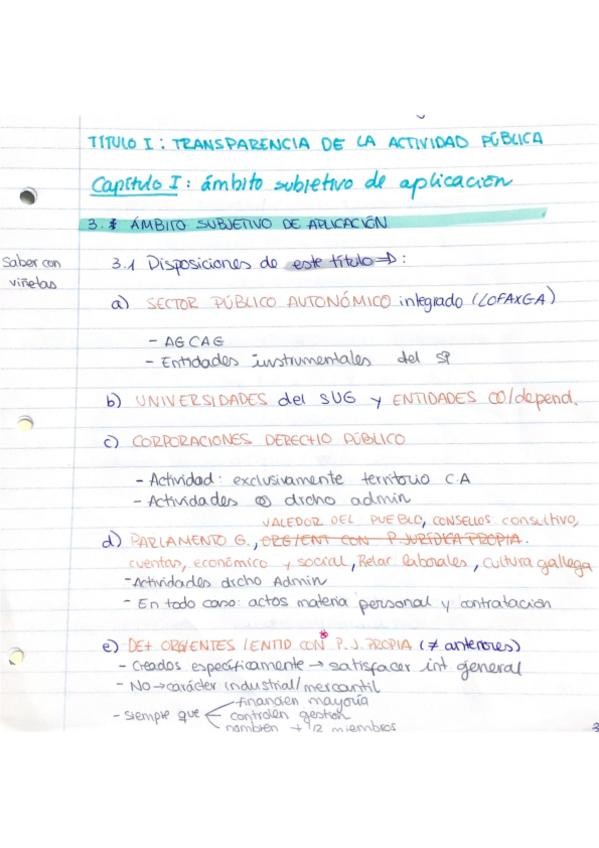 TÍTULO I: TRANSPARENCIA DE LA ACTIVIDAD PÚBLICA
Capítulo I: ámbito subjetivo de aplicación
3. ÁMBITO SUBJETIVO DE APLICACIÓN
Saber con viñetas
3.1 Disposiciones de este título → :
a) SECTOR PÚBLICO AUTONÓMICO integrado (LOFAXGA)
- AGCAG
- Entidades instrumentales del SP
b) UNIVERSIDADES del SUG y ENTIDADES /depend.
c) CORPORACIONES DERECHO PÚBLICO
- Actividad: exclusivamente territorio C.A
- Actividades drcho admin
VALEDOR DEL PUEBLO, CONSELLOS consultivo,
d) PARLAMENTO G., ORG/ENT CON P. JURÍDICA PROPIA.
cuentas, económico y social, Relac laborales, cultura gallega
- Actividades drcho Admin
- En todo caso: actos materia personal y contratación
e) DE+ ORG/ENTES /ENTID CON* P.J. PROPIA (≠ anteriores)
- Creados específicamente → satisfacer int general
- No → carácter industrial/mercantil
- siempre que
financien mayoría
controlen gestión
nombren + 1/2 miembros
3